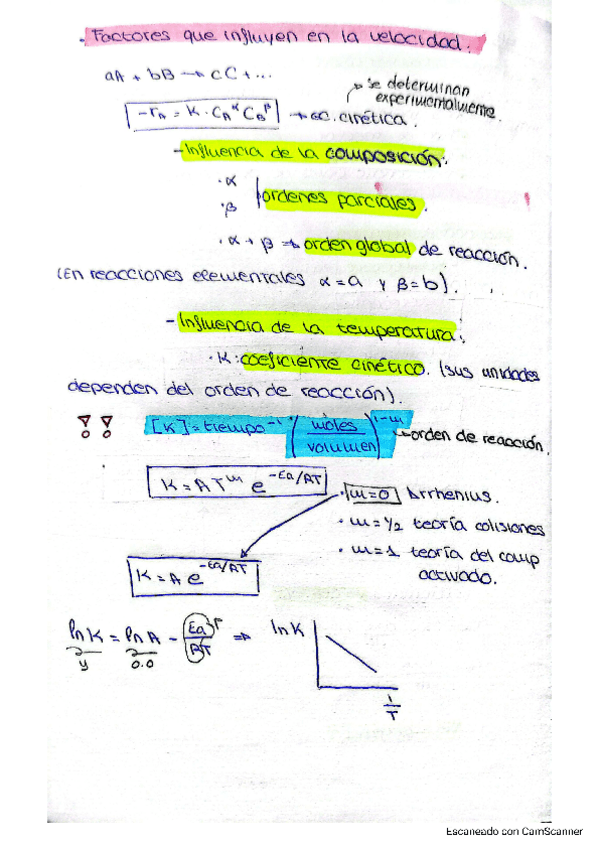 . Factores que influyen en la velocidad.
aA + bB → cC + ...
se determinan
experimentalmente.
-rA = K · CA^α CB^β → ec. cinética.
- Influencia de la composición:
· α
· β ordenes parciales.
· α + β → orden global de reacción.
(En reacciones elementales α = a y β = b).
- Influencia de la temperatura:
· K: coeficiente cinético. (sus unidades
dependen del orden de reacción).
!! [K] = tiempo^-1 (moles / volumen)^1-n → orden de reacción.
K = A T^m e^-Ea/RT
· m=0 Arrhenius.
· m = 1/2 teoría colisiones
· m = 1 teoría del comp
activado.
K = A e^-Ea/RT
ln K = ln A - Ea/RT ⇒ ln K
y o.o
1/T
Escaneado con CamScanner